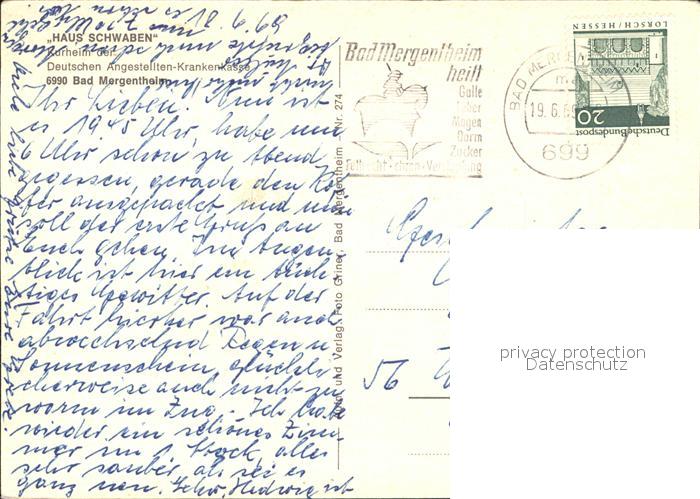 "HAUS SCHWABEN"
Kurheim der
Deutschen Angestellten-Krankenkasse
6990 Bad Mergentheim
Ihr Lieben. Nun ist
es 19.45 Uhr, habe um
6 Uhr schon zu Abend
gegessen, gerade den Kof
fer ausgepackt und nun
soll der erste Gruß an
Euch gehen. Im Augen
blick ist hier ein tüch
tiges Gewitter. Auf der
Fahrt hierher war auch
abwechselnd Regen u.
Sonnenschein, glückli
cherweise auch nicht zu
warm im Zug. Ich habe
wieder ein schönes Zim
mer im 1. Stock, alles
sehr sauber als sei es
ganz neu. Schw. Hedwig ist
Foto und Verlag: Foto Griner, Bad Mergentheim Nr. 274
Bad Mergentheim
heilt
Galle
Leber
Magen
Darm
Zucker
Fettsucht · chron. Verstopfung
BAD MERGEN
19.6.69
699
LORSCH/HESSEN
20
Deutsche Bundespost
56
privacy protection
Datenschutz